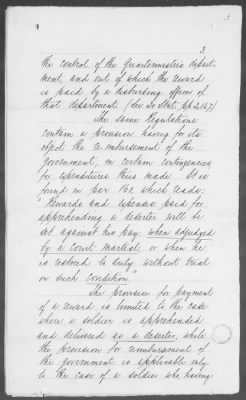 3
3.
the control of the Quartermaster's depart-
ment, and out of which the reward
is paid by a disbursing officer of
that department. (See 20 Stat. pp. 2, 147)
The same Regulations
contain a provision having for its
object the re-imbursement of the
Government, in certain contingencies
for expenditures thus made. It is
found in par. 160, which reads:
"Rewards and expenses paid for
apprehending a deserter will be
set against his pay when adjudged
by a Court Martial, or when he
is restored to duty without trial
on such condition."
The provision for payment
of a reward is limited to the case
where a soldier is apprehended
and delivered as a deserter, while
the provision for reimbursement of
the Government is applicable only
to the case of a soldier who having